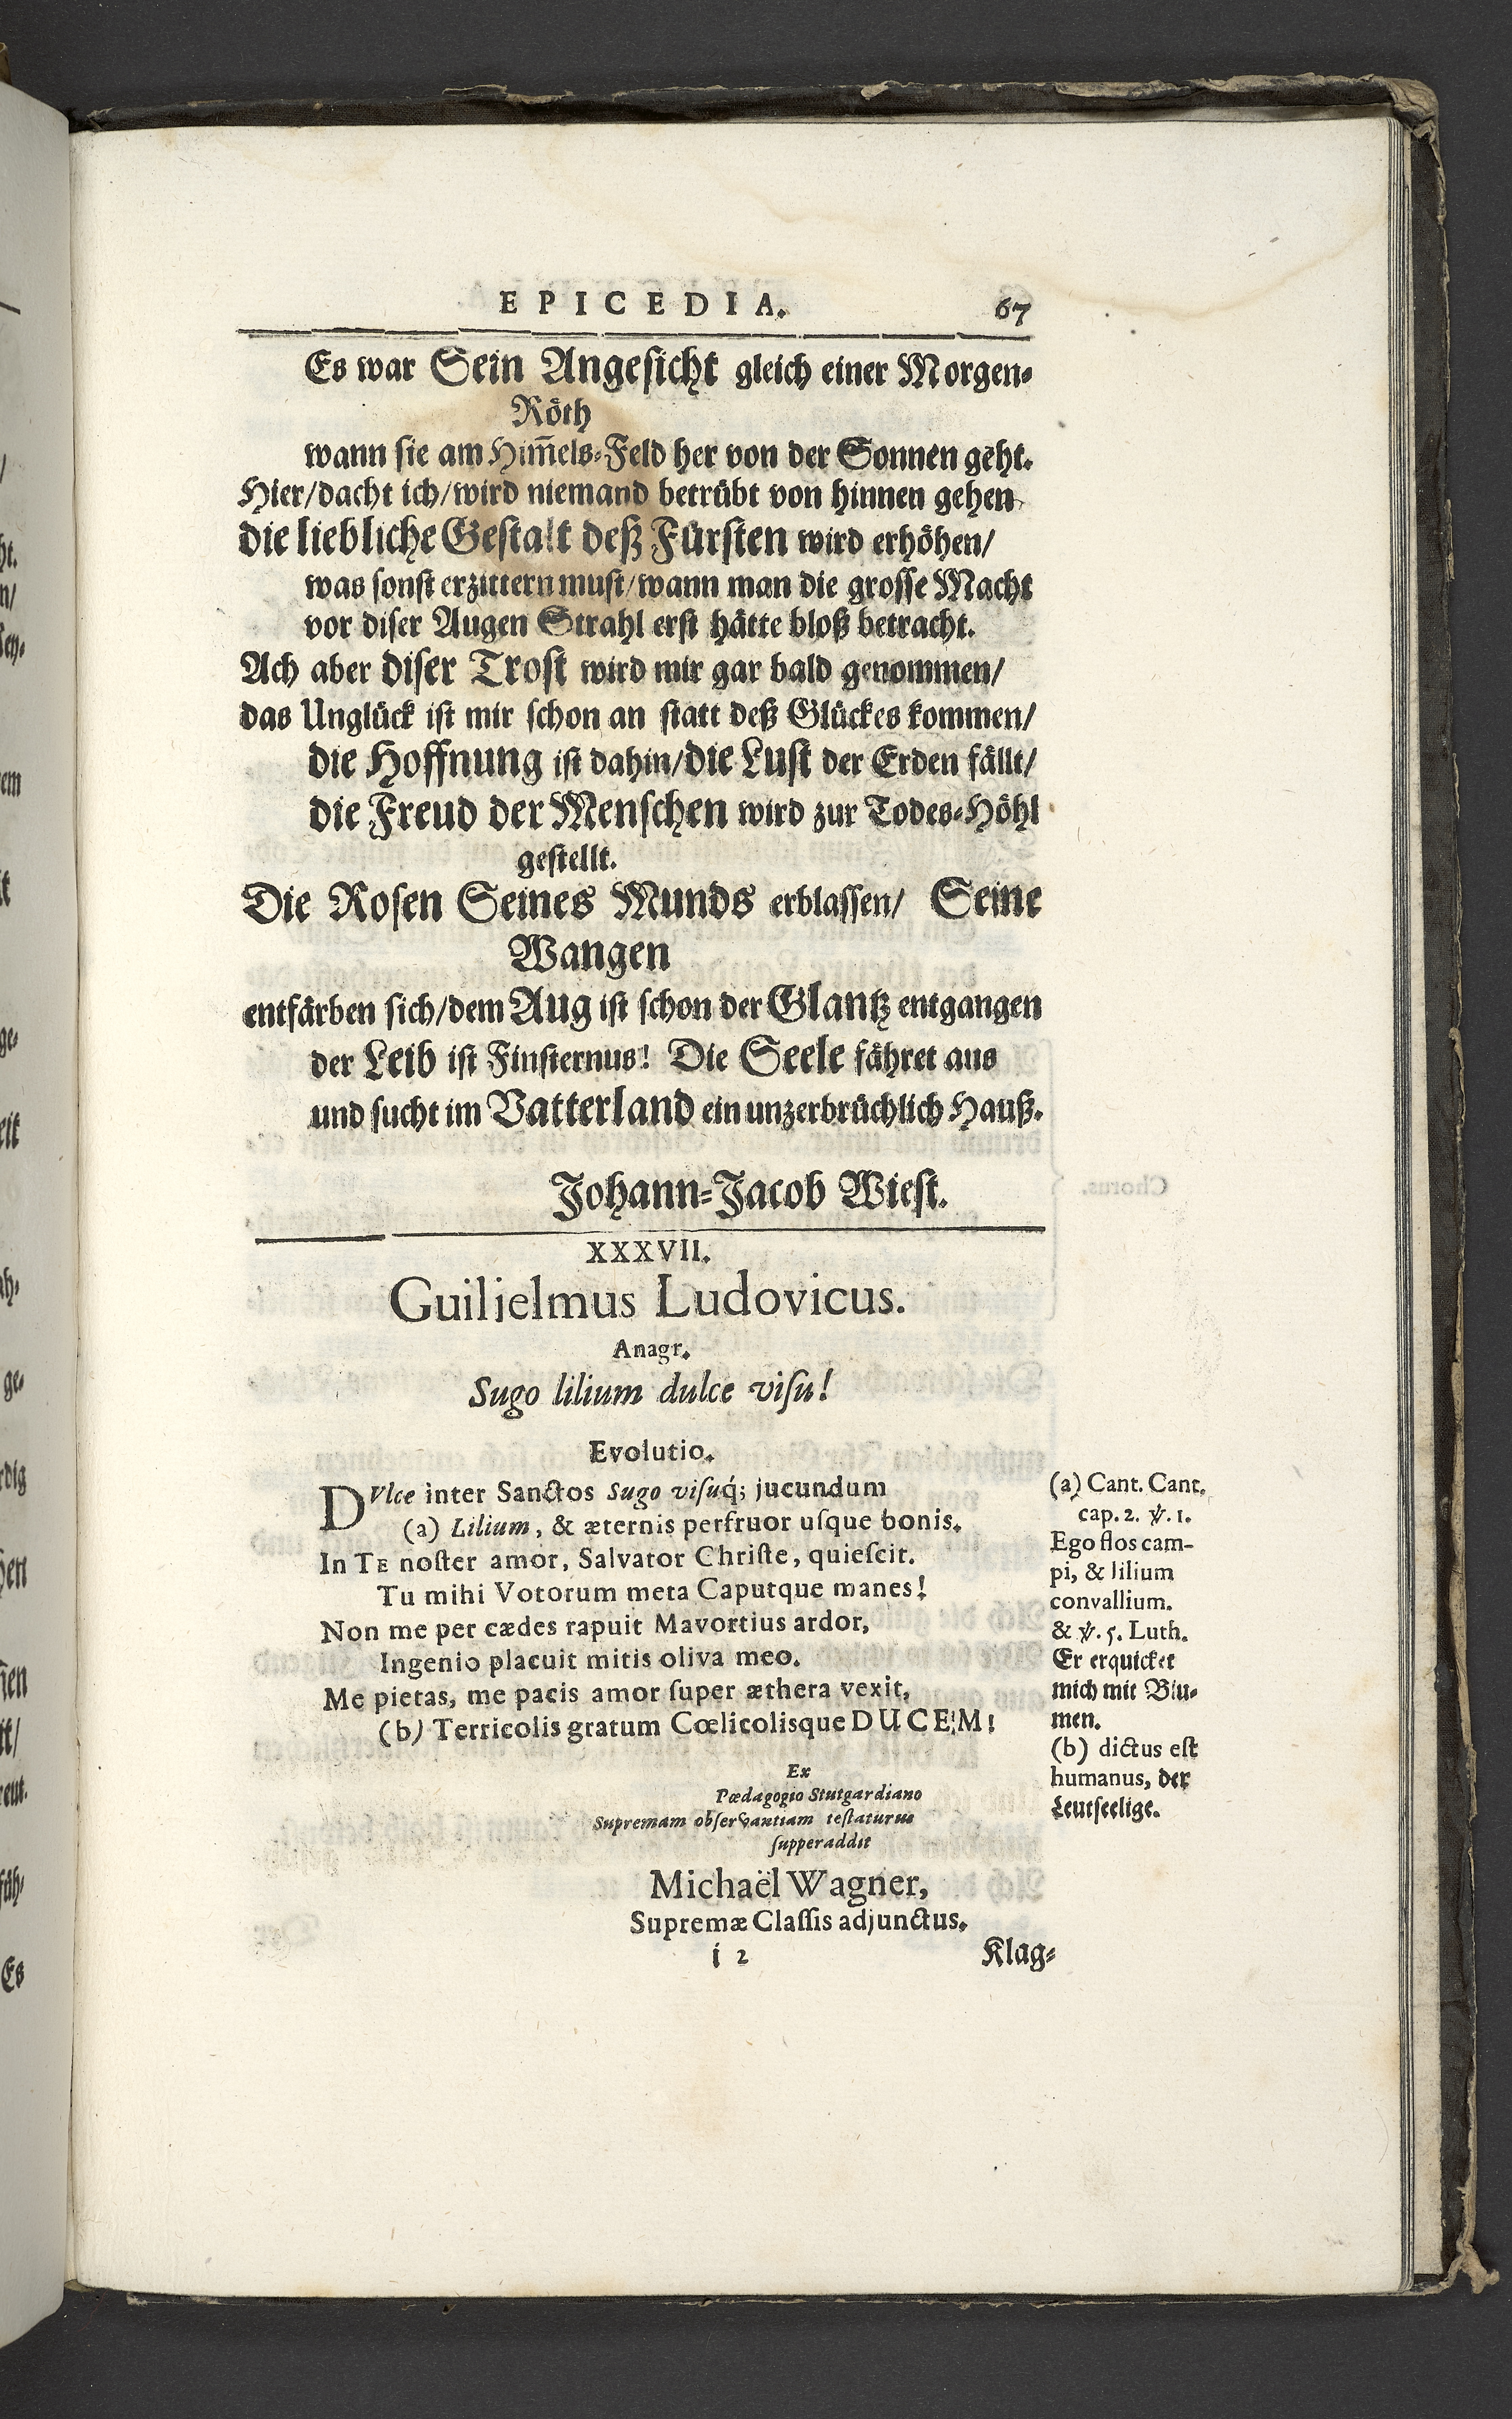 EPICEDIA. 67
Es war Sein Angesicht gleich einer Morgen-
Röth
wann sie am Him̄els-Feld her von der Sonnen geht.
Hier/dacht ich/wird niemand betrübt von hinnen gehen
die liebliche Gestalt deß Fürsten wird erhöhen/
was sonst erzittern must/wann man die grosse Macht
vor diser Augen Strahl erst hätte bloß betracht.
Ach aber diser Trost wird mir gar bald genommen/
das Unglück ist mir schon an statt deß Glückes kommen/
die Hoffnung ist dahin/die Lust der Erden fällt/
die Freud der Menschen wird zur Todes-Höhl
gestellt.
Die Rosen Seines Munds erblassen/ Seine
Wangen
entfärben sich/dem Aug ist schon der Glantz entgangen
der Leib ist Finsternus! Die Seele fähret aus
und sucht im Vatterland ein unzerbrüchlich Hauß.
Johann-Jacob Wiest.
XXXVII.
Guilielmus Ludovicus.
Anagr.
Sugo lilium dulce visu!
Evolutio.
DVlce inter Sanctos Sugo visuq́; jucundum
(a) Lilium, & æternis perfruor usque bonis.
In TE noster amor, Salvator Christe, quiescit.
Tu mihi Votorum meta Caputque manes!
Non me per cædes rapuit Mavortius ardor,
Ingenio placuit mitis oliva meo.
Me pietas, me pacis amor super æthera vexit,
(b) Terricolis gratum Cœlicolisque DUCEM!
(a) Cant. Cant.
cap. 2. ℣. 1.
Ego flos cam-
pi, & lilium
convallium.
& ℣. 5. Luth.
Er erquicket
mich mit Blu-
men.
(b) dictus est
humanus, der
Leutseelige.
Ex
Pædagogio Stutgardiano
Supremam observantiam testaturus
supperaddit
Michaël Wagner,
Supremæ Classis adjunctus.
i 2 Klag-